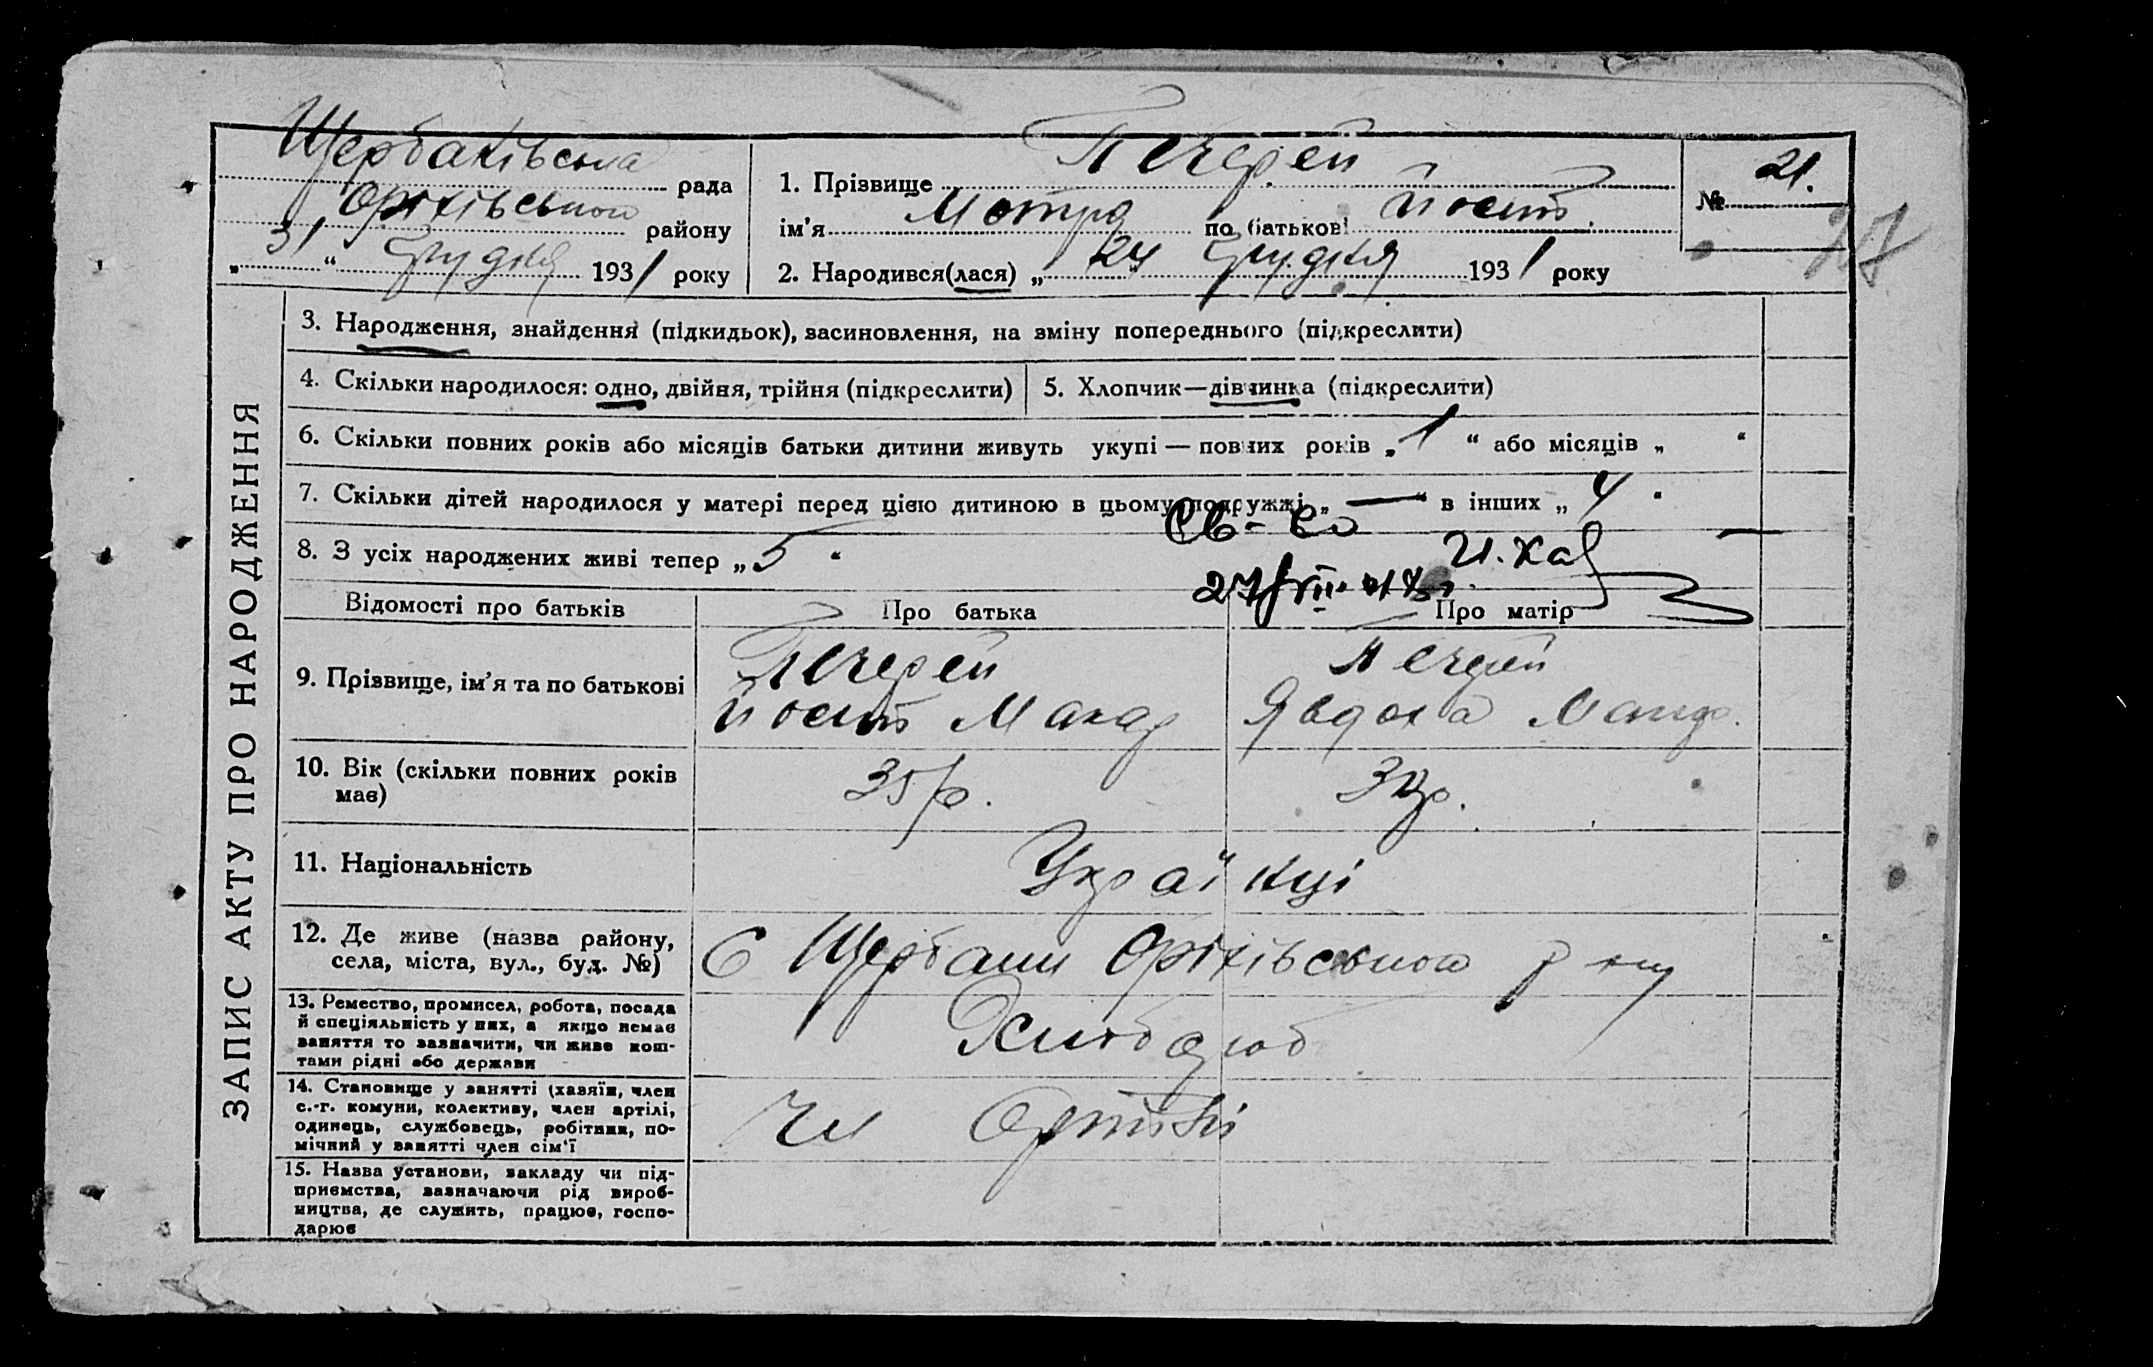 Щербаківська рада
Оріхівського району
„31“ Грудня 1931 року
1. Прізвище Печерей
ім’я Мотря по батькові Йосип.
2. Народився(лася) „24 Грудня 1931 року
№ 21.
27
ЗАПИС АКТУ ПРО НАРОДЖЕННЯ
3. Народження, знайдення (підкидьок), засиновлення, на зміну попереднього (підкреслити)
4. Скільки народилося: одно, двійня, трійня (підкреслити)
5. Хлопчик—дівчинка (підкреслити)
6. Скільки повних років або місяців батьки дитини живуть укупі — повних років „1“ або місяців „ “
7. Скільки дітей народилося у матері перед цією дитиною в цьому подружжі „—“ в інших „4“
8. З усіх народжених живі тепер „5“
Св-во
27/VIII
Відомості про батьків
Про батька
Про матір
9. Прізвище, ім’я та по батькові
Печерей
Йосип Макар
Печерей
Явдоха
10. Вік (скільки повних років
має)
35 р.
11. Національність
Українці
12. Де живе (назва району,
села, міста, вул., буд. №)
С Щербаки Оріхівського р ну
13. Ремество, промисел, робота, посада
й спеціяльність у них, а якщо немає
заняття то зазначити, чи живе кош-
тами рідні або держави
Хлібороб
14. Становище у занятті (хазяїн, член
с.-г. комуни, колективу, член артілі,
одинець, службовець, робітник, по-
мічний у занятті член сім’ї
Чл Артілі
15. Назва установи, закладу чи під-
приємства, зазначаючи рід вироб-
ництва, де служить, працює, госпо-
дарює